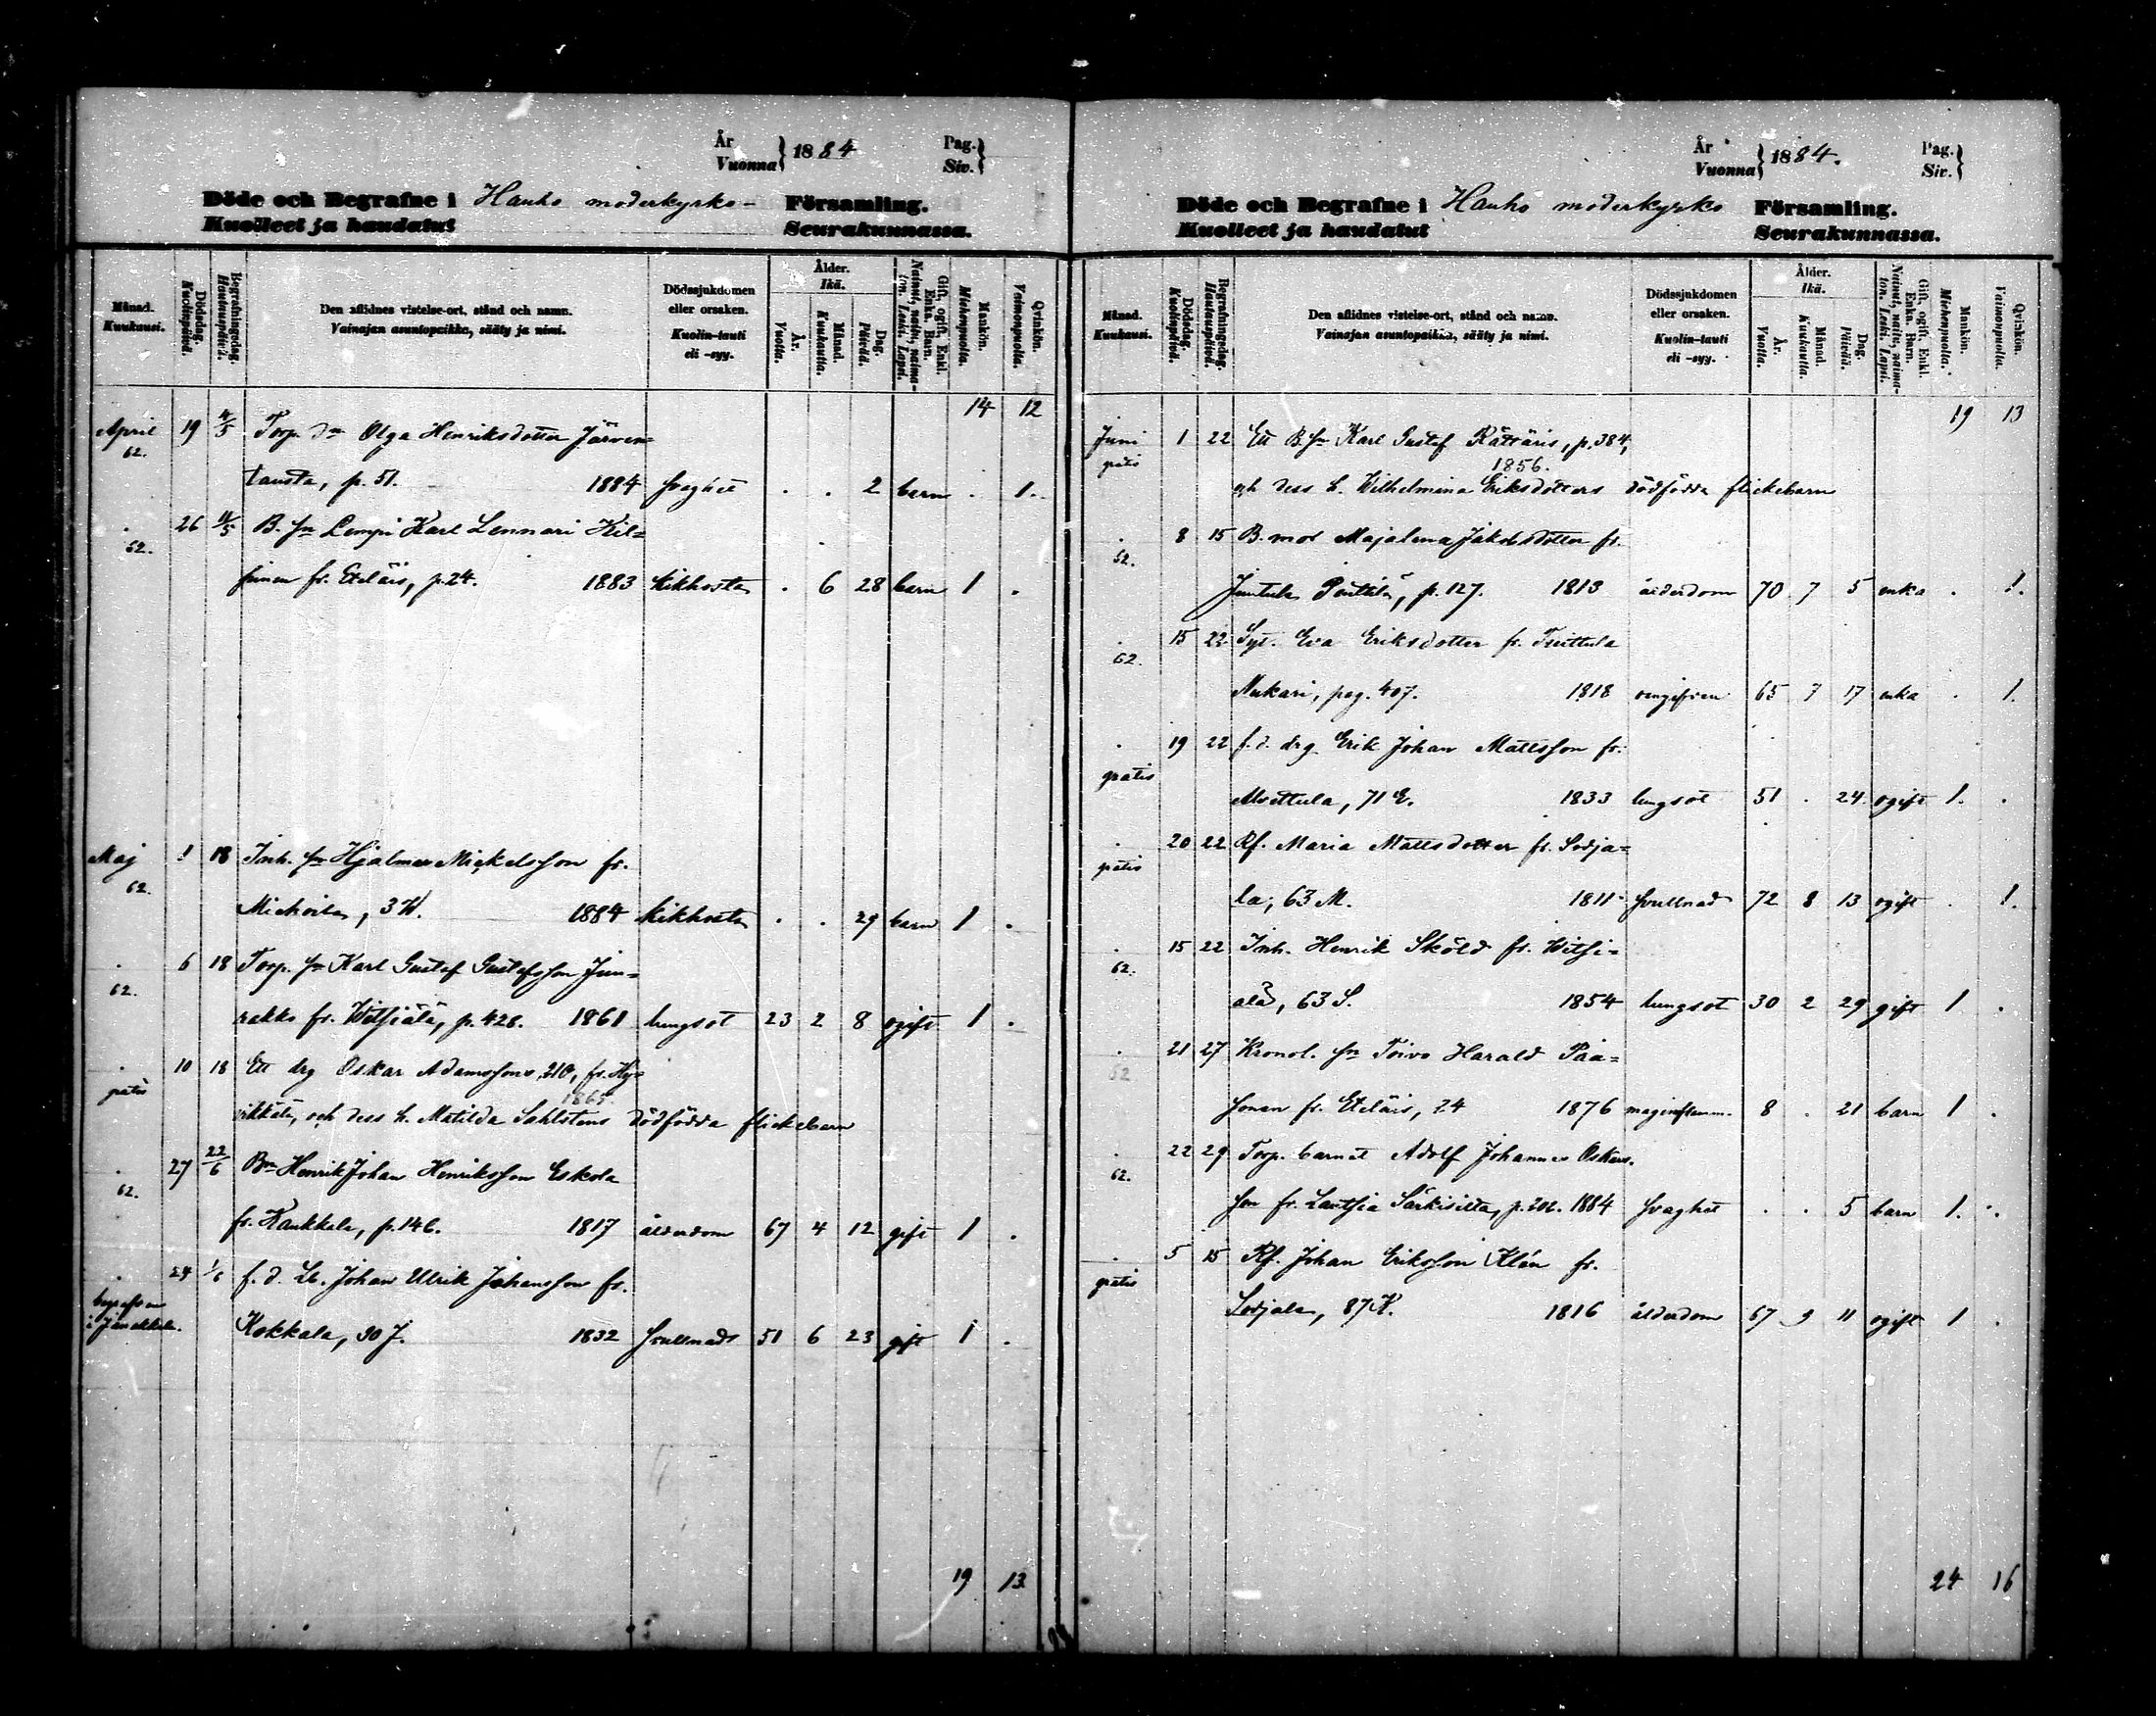 År
Vuonna } 1884
Pag.
Siv. }
Döde och Begrafne i Hauho moderkyrko- Församling.
Kuolleet ja haudatut Seurakunnassa.
Månad. Kuukausi.
Dödsdag. Kuolinpäivä.
Begrafningsdag. Hautauspäivä.
Den aflidnes vistelse-ort, stånd och namn.
Vainajan asuntopaikka, sääty ja nimi.
Dödssjukdomen eller orsaken.
Kuolin-tauti eli -syy.
Ålder. Ikä.
År. Vuotta.
Månad. Kuukautta.
Dag. Päivää.
Gift, ogift, Enkl. Enka. Barn.
Nainut, naitu, naima-ton. Leski. Lapsi.
Mankön. Miehenpuolta.
Qvinkön. Vaimonpuolta.
14 12
April 19 4/5 Torp. dr Olga Henriksdotter Järven=
62.
tausta, p. 51. 1884 svaghet . . 2 barn . 1.
. 26 4/5 B. sn Lempi Karl Lennari Hil=
62.
sinen fr. Eteläis, p. 24. 1883 kikhosta . 6 28 barn 1 .
Maj 1 18 Inh. sn Hjalmar Mickelsson fr.
62.
Miehoila, 3 H. 1884 kikhosta . . 29 barn 1 .
. 6 18 Torp. sn Karl Gustaf Gustafsson Jun=
62.
rakko fr. Witsiälä, p. 428. 1861 lungsot 23 2 8 ogift 1 .
. 10 18 Ett drg Oskar Adamssons, 210, fr. Hy=
gratis 1865.
vikkälä, och dess h. Matilda Sahlstens dödfödda flickebarn
. 27 22/6 Bn Henrik Johan Henriksson Eskola
62.
fr. Kaukkala, p. 146. 1817 ålderdom 67 4 12 gift 1 .
. 24 1/6 f. d. Lb. Johan Ulrik Johansson fr.
begrafven
i Janakkala.
Kokkala, 90 J. 1832 svullnad 51 6 23 gift 1 .
19 13
År
Vuonna } 1884.
Pag.
Siv. }
Döde och Begrafne i Hauho moderkyrko Församling.
Kuolleet ja haudatut Seurakunnassa.
Månad. Kuukausi.
Dödsdag. Kuolinpäivä.
Begrafningsdag. Hautauspäivä.
Den aflidnes vistelse-ort, stånd och namn.
Vainajan asuntopaikka, sääty ja nimi.
Dödssjukdomen eller orsaken.
Kuolin-tauti eli -syy.
Ålder. Ikä.
År. Vuotta.
Månad. Kuukautta.
Dag. Päivää.
Gift, ogift, Enkl. Enka. Barn.
Nainut, naitu, naima-ton. Leski. Lapsi.
Mankön. Miehenpuolta.
Qvinkön. Vaimonpuolta.
19 13
Juni 1 22 Ett B. sn Karl Gustaf Rättäris, p. 384,
gratis 1856.
och dess h. Wilhelmina Eriksdotters dödfödda flickebarn
. 8 15 B. mor Majalena Jakobsdotter fr.
52.
Juntula Penttilä, p. 127. 1813 ålderdom 70 7 5 enka . 1.
. 15 22 Syt. Eva Eriksdotter fr. Tuittula
62.
Mukari, pag. 407. 1818 65 7 17 enka . 1.
. 19 22 f. d. drg Erik Johan Mattsson fr.
gratis
Alvettula, 71 E. 1833 lungsot 51 . 24 ogift 1. .
. 20 22 Rf. Maria Mattsdotter fr. Sorja=
gratis
la, 63 M. 1811 svullnad 72 8 13 ogift . 1.
. 15 22 Inh. Henrik Sköld fr. Witsi=
62.
älä, 63 S. 1854 lungsot 30 2 29 gift 1 .
. 21 27 Kronol. sn Toivo Harald Paa=
52
sonen fr. Eteläis, 24 1876 maginflamm. 8 . 21 barn 1 .
. 22 29 Torp. barnet Adolf Johannes Oskars.
62.
son fr. Lautsia Särkisilta, p. 202. 1884 svaghet . . 5 barn 1. .
. 5 15 Rf. Johan Eriksson Klén fr.
gratis
Sorjala, 87 K. 1816 ålderdom 67 9 11 ogift 1 .
24 16